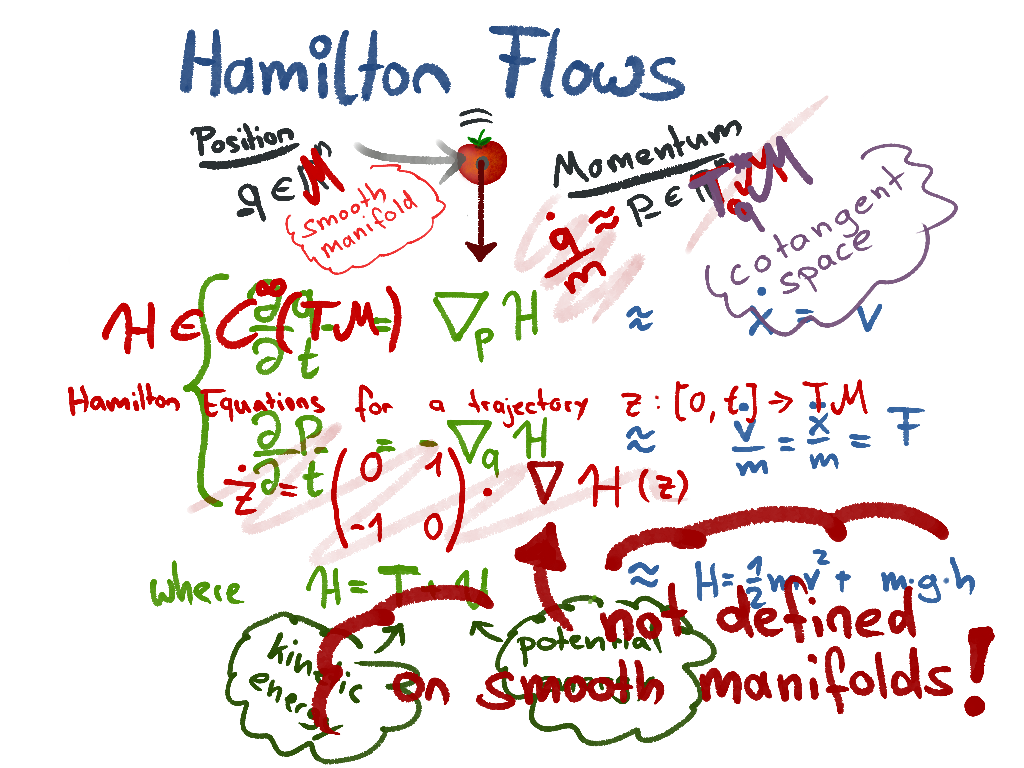 Hamilton Flows
Position
Momentum
q ∈ M
p ∈ T*qM
smooth
manifold
q̇/m ≈
cotangent
space
H ∈ C^∞(TM)
∂q/∂t = ∇p H ≈ ẋ = v
Hamilton Equations for a trajectory z : [0, t] → TM
∂p/∂t = -∇q H ≈ v̇/m = ẍ/m = F
ż = (0 1 -1 0) · ∇ H (z)
where H = T + U ≈ H = 1/2 m v² + m·g·h
kinetic
energy
potential
not defined
on smooth manifolds!